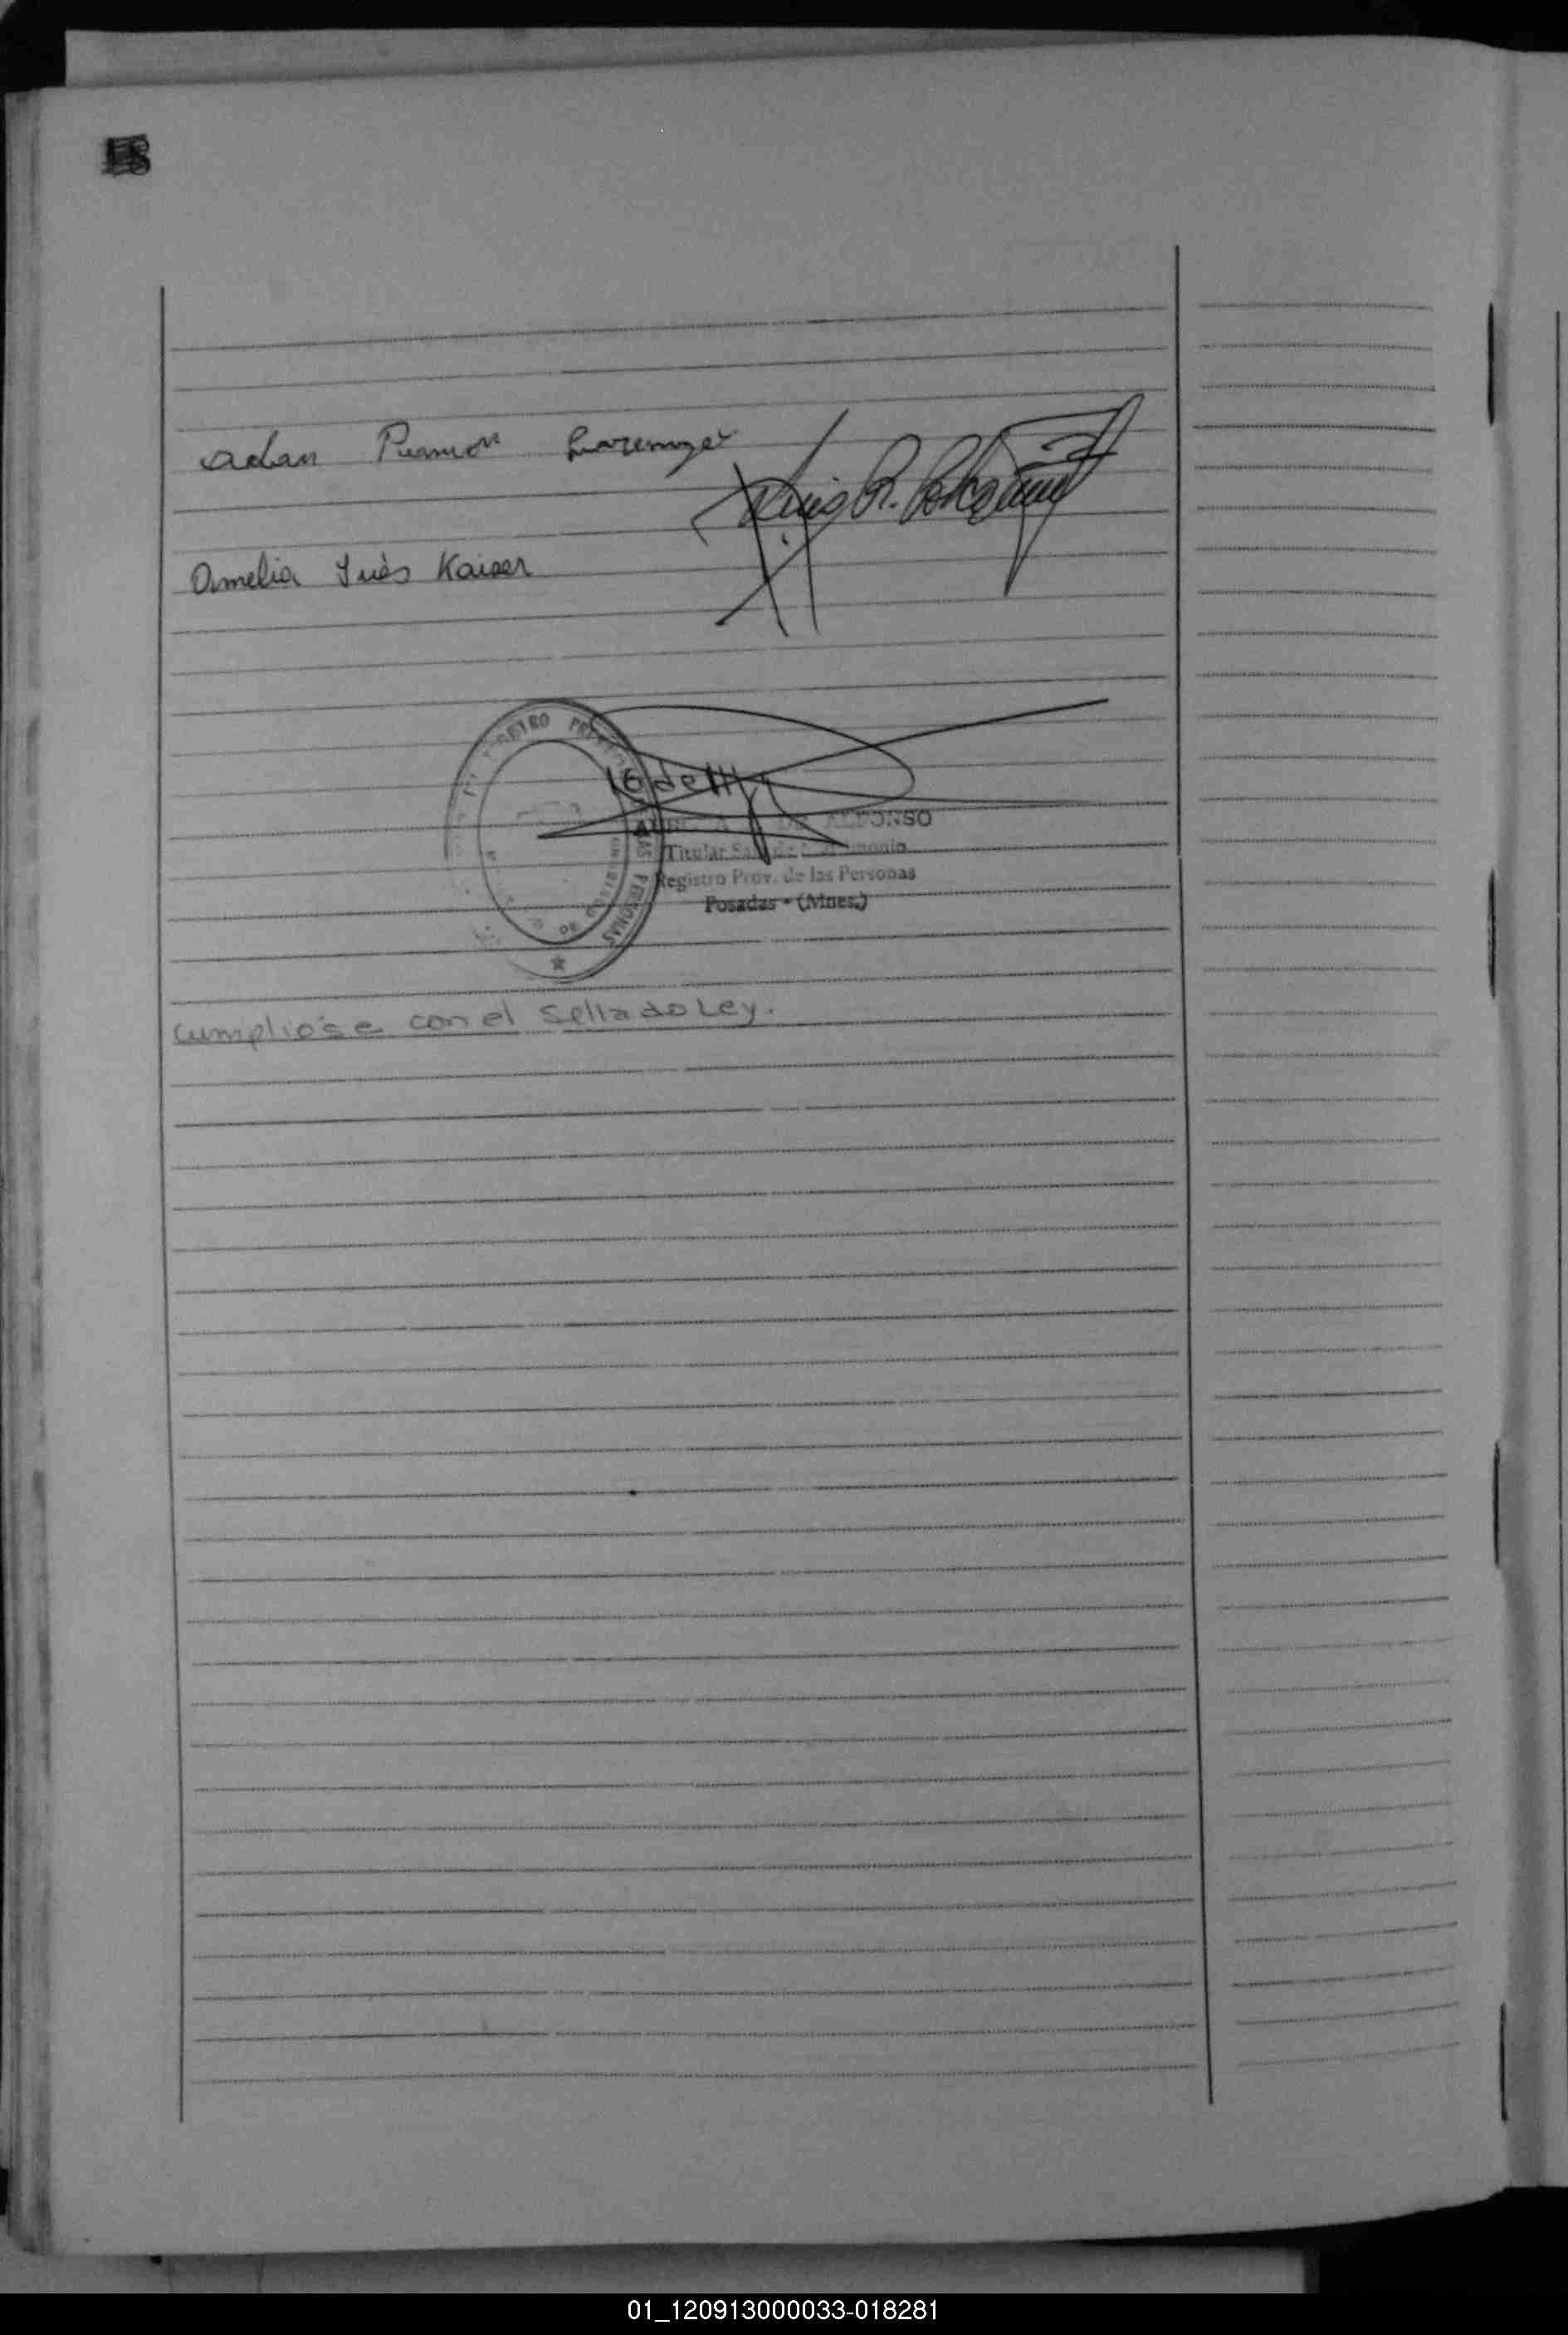 Adan Ramón
Luis R.
Amelia Inès Kaiser
REGISTRO
LAS PERSONAS
DE
16 de III
DE ALFONSO
Titular
Registro Prov. de las Personas
Posadas - (Mnes.)
Cumplióse con el Sellado Ley.
01_120913000033-018281